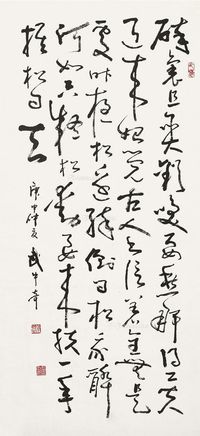 醉裏且貪歡笑要愁那得工夫
近来始覺古人書信着全無是
處昨夜松邊醉倒问松我醉
何如只疑松動要来扶以手
推松曰去
庚申仲夏武中奇